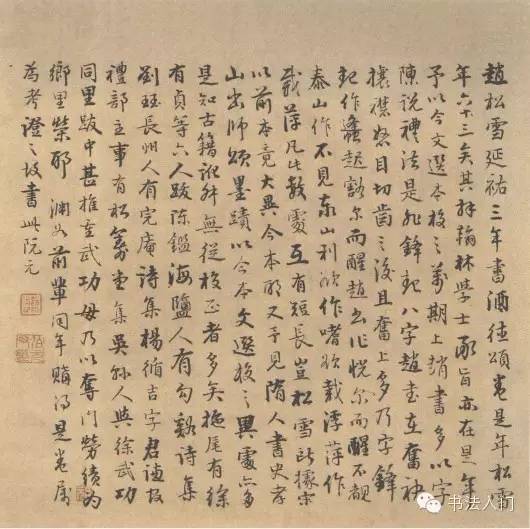 趙松雪延祐三年書酒德頌卷是年松雪
年六十三矣其拜翰林學士承旨亦在是年
予以今文選本校之萬期上趙書多以字
陳說禮法是非鋒起八字趙書在奮袂
攘襟怒目切齒之後且奮上多乃字鋒
起作蠭起豁尔而醒趙書作恍尔而醒不覩
泰山作不見泰山利欲作嗜欲載浮萍作
載萍凡此數處互有短長豈松雪所據宋
以前本竟大異今本耶又予見隋人書史孝
山出師頌墨蹟以今本文選校之異處亦多
是知古籍訛舛無從校正者多矣拖尾有徐
有貞等六人跋陳鑑海鹽人有勾谿詩集
劉珏長州人有完庵詩集楊循吉字君謙故
禮部主事有松籌堂集吳孫人與徐武功
同里跋中甚推重武功毋乃以奪門勞績為
鄉里榮耶 淵如前輩同年購得是卷屬
為考證之故書此阮元
书法人们